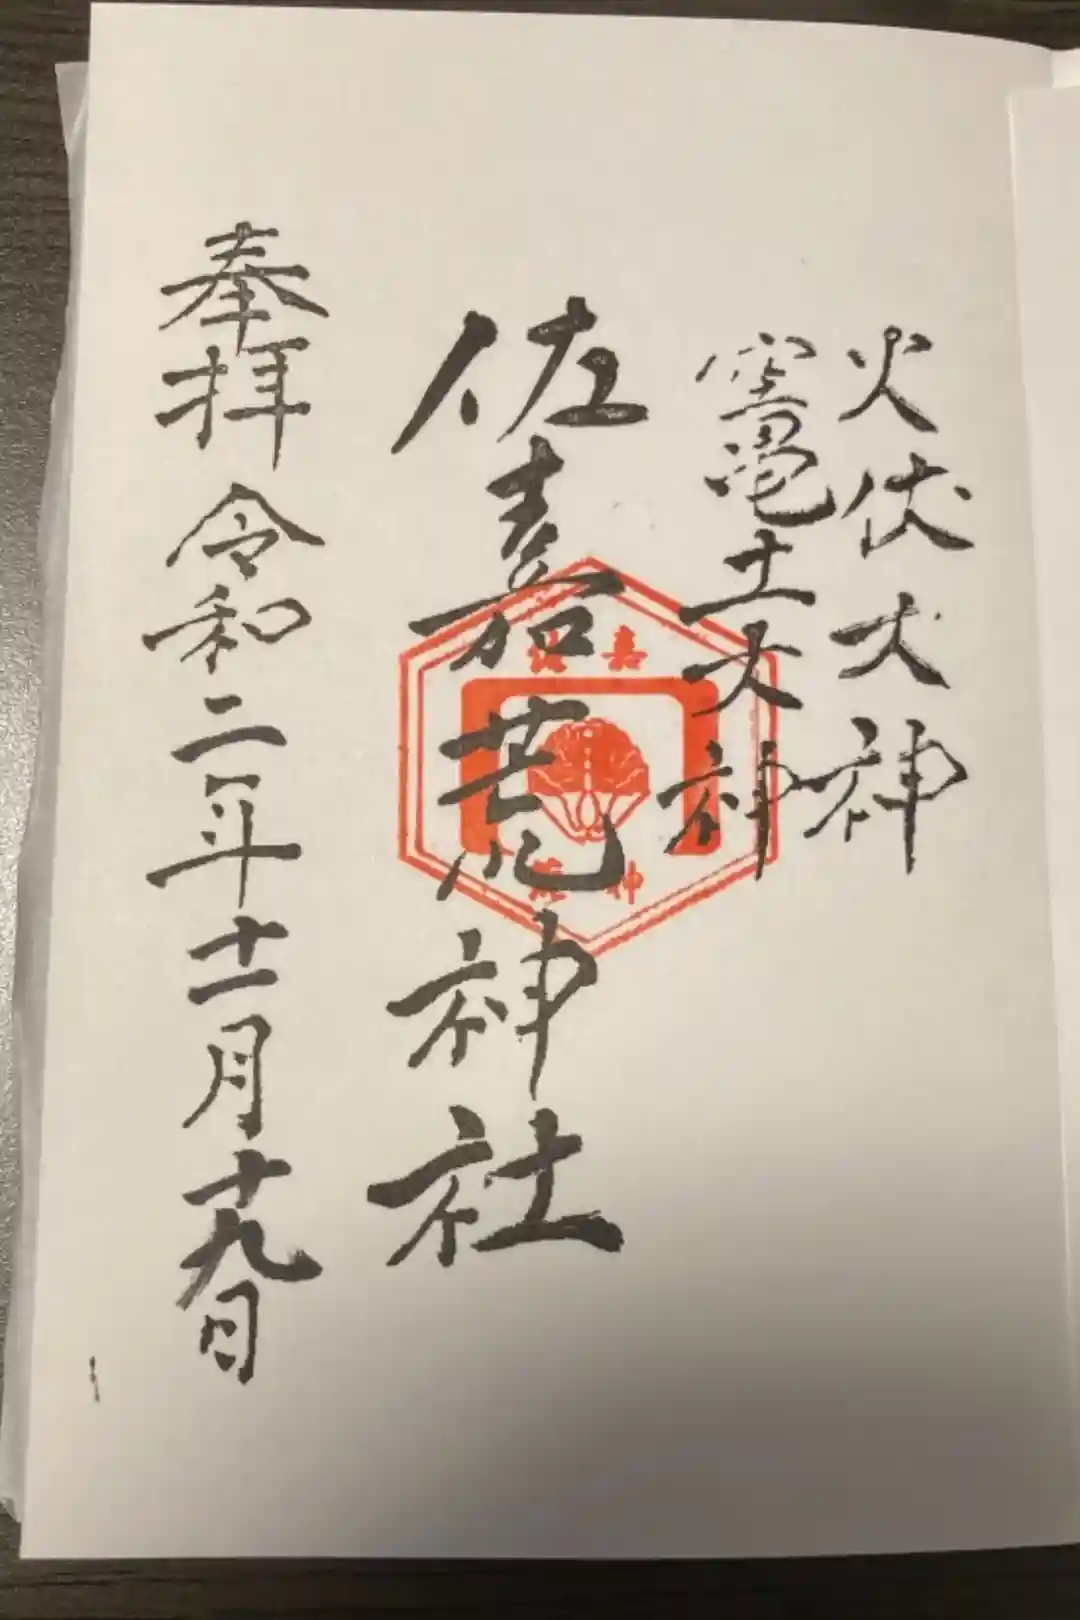 火伏大神
竈土大神
佐嘉荒神社
奉拝 令和二年十一月十九日